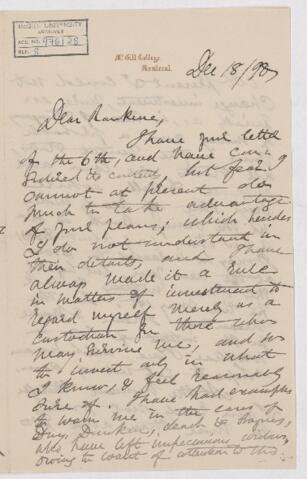 McGILL UNIVERSITY
ARCHIVES
ACC. NO. 976/28
REF. 8
McGill College
Montreal.
Dec 18/90
Dear Rankine,
I have your letter
of the 6th, and have con-
sidered its contents, but fear I
cannot at present do
much to take advantage
of your plans; which besides
I do not understand in
their details, and I have
always made it a rule
in matters of investment to
regard myself merely as a
custodian for those who
may survive me, and so
to invest only in what
I know, & feel reasonably
sure of. I have had examples
to warn me in the cases of
Day, Dunkin, &
who have left impecunious widows,
owing to want of attention to this.